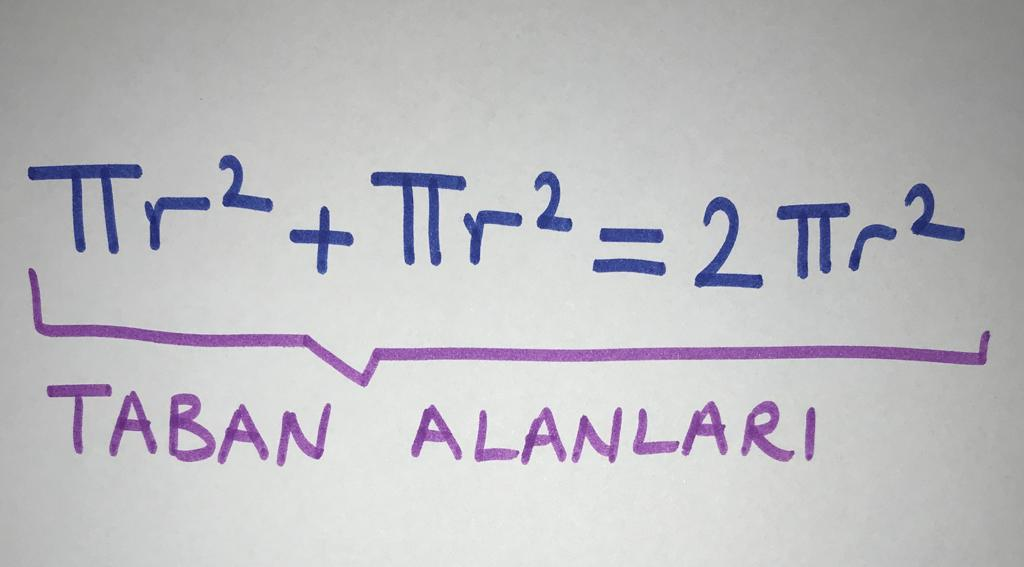 πr² + πr² = 2πr²
TABAN ALANLARI